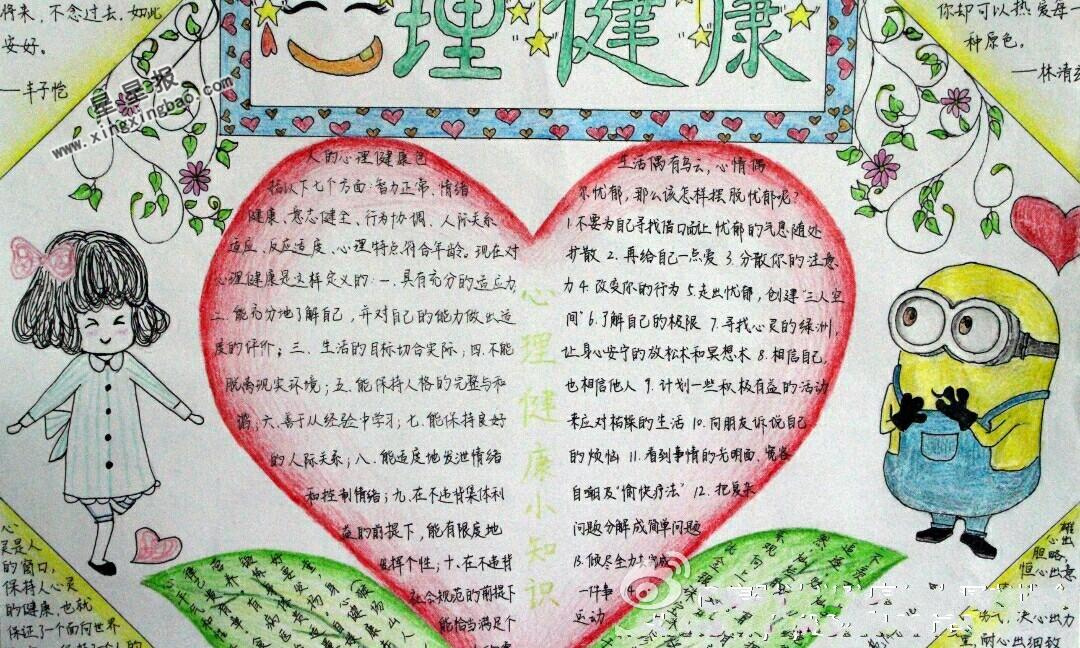 将来，不念过去，如此
安好。
——丰子恺
心理健康
你却可以热爱每一
种原色。
——林清玄
星星报
www.xingxingbao.com
人的心理健康包
括以下七个方面：智力正常、情绪
健康、意志健全、行为协调、人际关系
适应、反应适度、心理特点符合年龄。现在对
心理健康是这样定义的：一、具有充分的适应力；
二、能充分地了解自己，并对自己的能力做出适
度的评价；三、生活的目标切合实际；四、不能
脱离现实环境；五、能保持人格的完整与和
谐；六、善于从经验中学习；七、能保持良好
的人际关系；八、能适度地发泄情绪
和控制情绪；九、在不违背集体利
益的前提下，能有限度地
发挥个性；十、在不违背
社会规范的前提下
能恰当满足个
心理健康小知识
生活偶有乌云，心情偶
尔忧郁，那么该怎样摆脱忧郁呢？
1.不要为自己寻找借口而让忧郁的气息随处
扩散 2.再给自己一点爱 3.分散你的注意
力 4.改变你的行为 5.走出忧郁，创建“三人空
间” 6.了解自己的极限 7.寻找心灵的绿洲，
让身心安宁的放松术和冥想术 8.相信自己，
也相信他人 9.计划一些积极有益的活动
来应对枯燥的生活 10.向朋友诉说自己
的烦恼 11.看到事情的光明面，宽容
自嘲及“愉快疗法” 12.把复杂
问题分解成简单问题
13.做尽全力去完成
一件事
运动
心
灵是人
的窗口，
保持人心灵
的健康，也就
保证了一个面向世界
雄
心出
胆略，
恒心出意
勇气，决心出力
量，耐心出细致